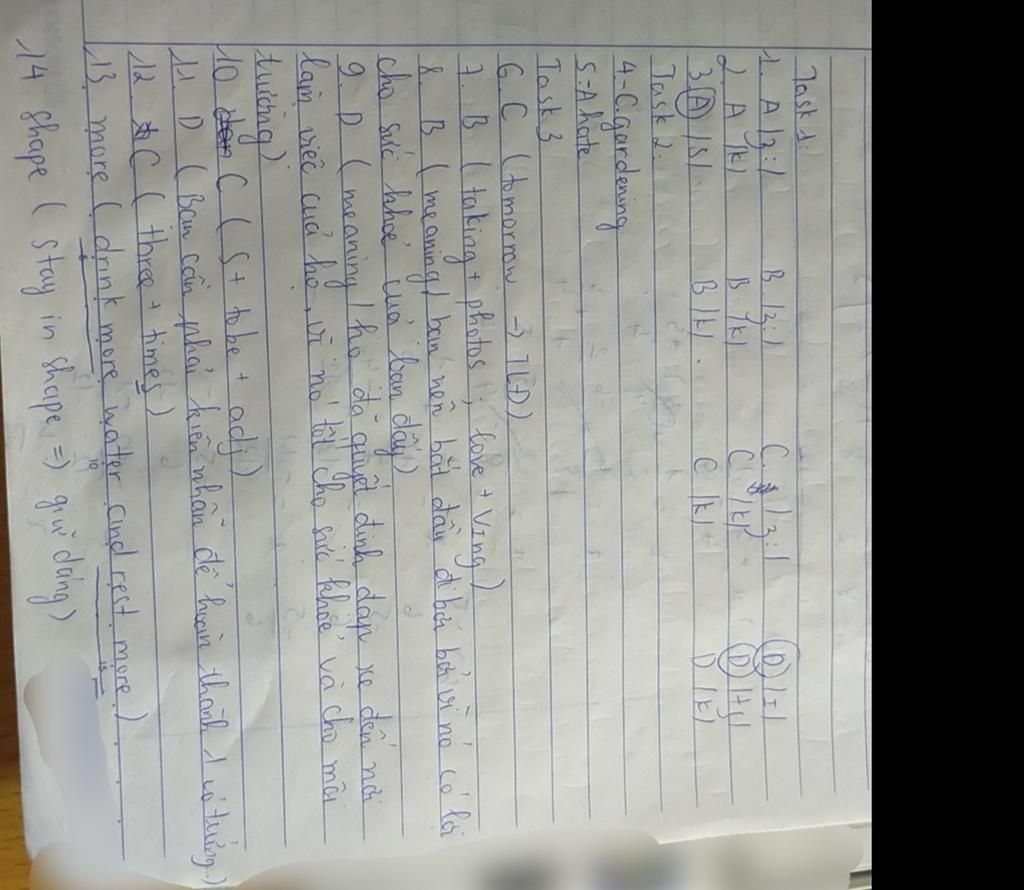 Task 1:
1. A /ɜ:/ B /ɜ:/ C. /ɜ:/ D /ɪ/
2. A /k/ B /k/ C /k/ D /tʃ/
3. A /s/ B /k/ C /k/ D /k/
Task 2:
4-C. gardening
5-A hate
Task 3
6. C (tomorrow → TLĐ)
7. B (taking + photos, love + Ving)
8. B (meaning / bạn nên bắt đầu đi bơi bởi vì nó có lợi
cho sức khoẻ của bạn đấy)
9. D (meaning / họ đã quyết định đạp xe đến nơi
làm việc của họ, vì nó tốt cho sức khoẻ và cho môi
trường)
10 C (S + tobe + adj)
11. D (Bạn cần phải kiên nhẫn để hoàn thành 1 vỏ trứng.)
12. C (three + times)
13. more (drink more water and rest more.)
14 shape (stay in shape => giữ dáng)